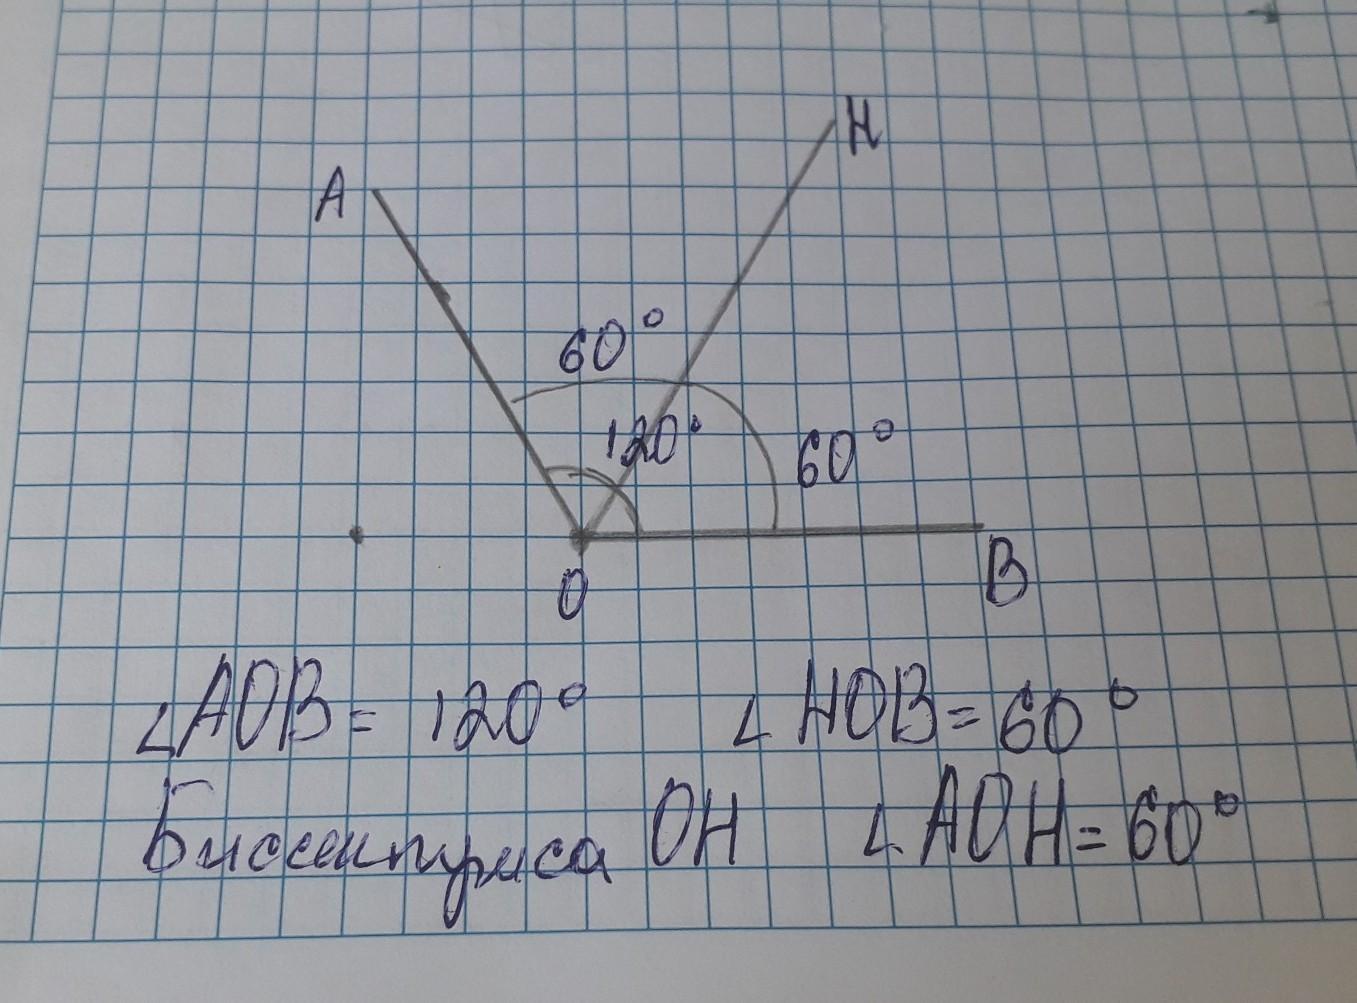 H
A
60°
120°
60°
O
B
∠AOB = 120° ∠HOB = 60°
Биссектриса OH ∠AOH = 60°